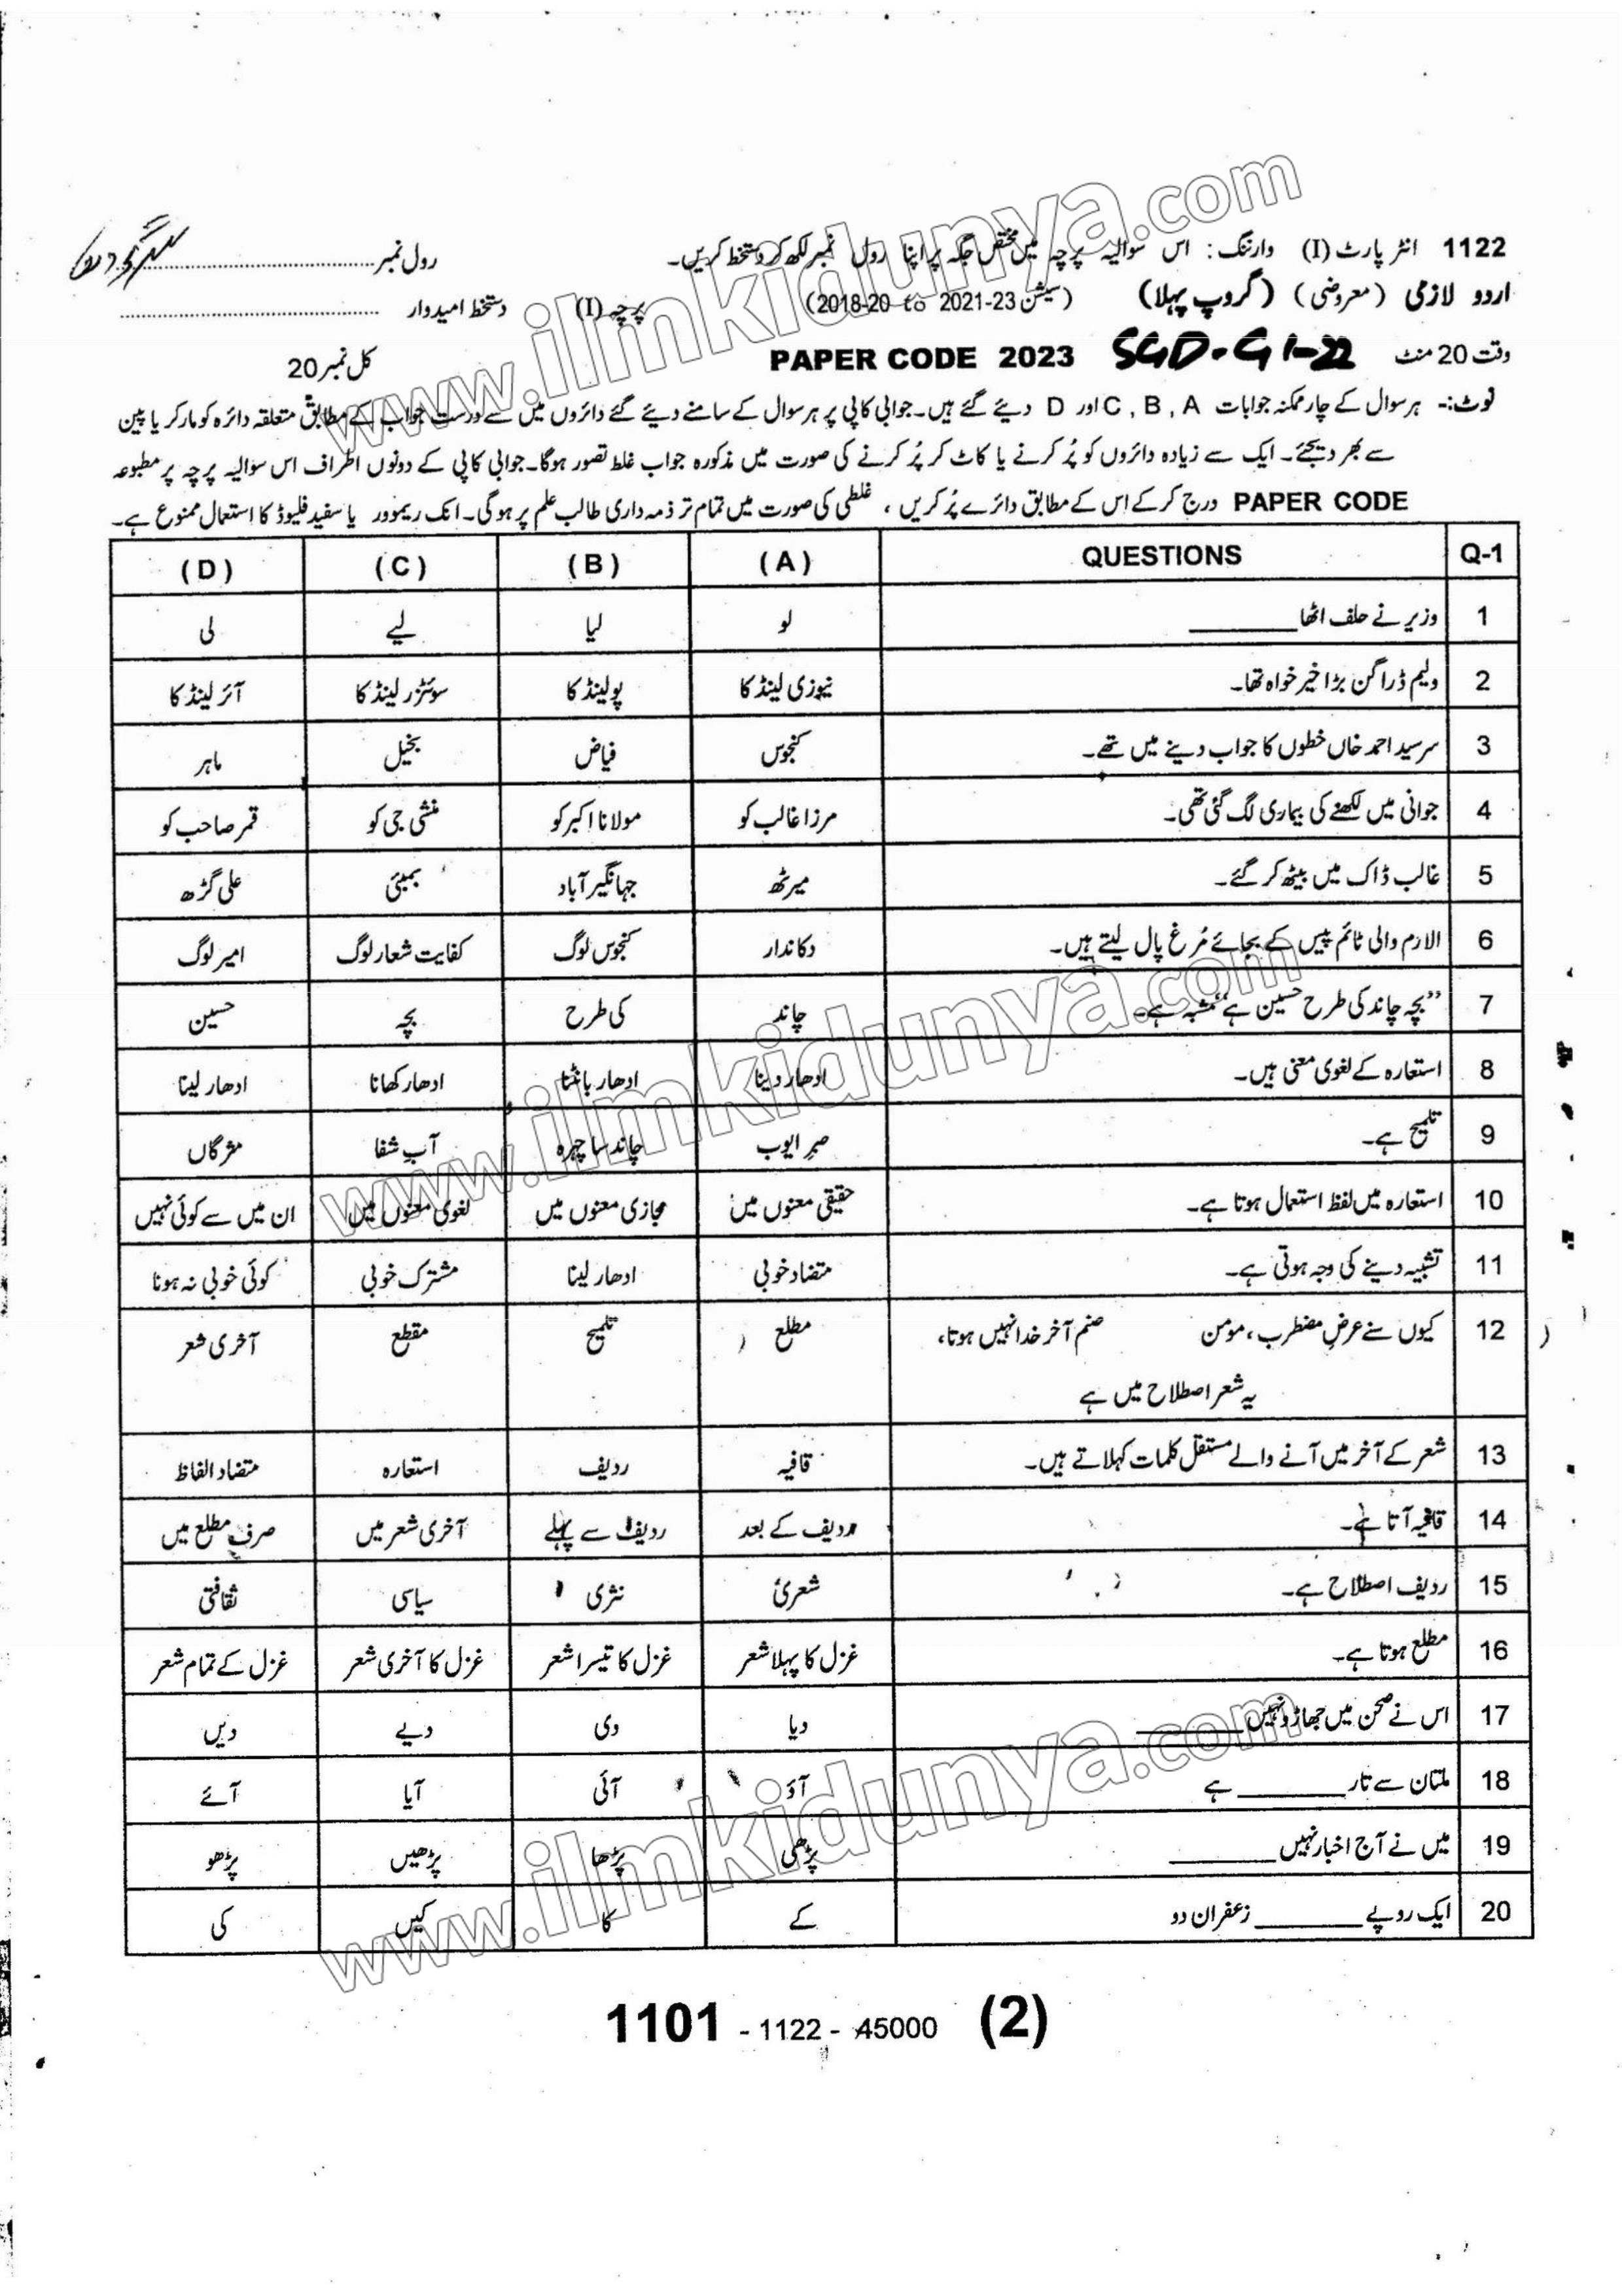 1122 انٹر پارٹ (I) وارننگ: اس سوالیہ پرچہ میں مختص جگہ پر اپنا رول نمبر لکھ کر دستخط کریں۔ رول نمبر
اردو لازمی (معروضی) (گروپ پہلا) (سیشن 2018-20 to 2021-23) پرچہ (I) دستخط امیدوار
وقت 20 منٹ SGD-G1-22 PAPER CODE 2023 کل نمبر 20
نوٹ:- ہر سوال کے چار ممکنہ جوابات A , B , C اور D دیئے گئے ہیں۔ جوابی کاپی پر ہر سوال کے سامنے دیئے گئے دائروں میں سے درست جواب کے مطابق متعلقہ دائرہ کو مارکر یا پین
سے بھر دیجئے۔ ایک سے زیادہ دائروں کو پُر کرنے یا کاٹ کر پُر کرنے کی صورت میں مذکورہ جواب غلط تصور ہوگا۔ جوابی کاپی کے دونوں اطراف اس سوالیہ پرچہ پر مطبوعہ
PAPER CODE درج کر کے اس کے مطابق دائرے پُر کریں ، غلطی کی صورت میں تمام تر ذمہ داری طالب علم پر ہوگی۔ انک ریموور یا سفید فلیوڈ کا استعمال ممنوع ہے۔
Q-1 QUESTIONS (A) (B) (C) (D)
1 وزیر نے حلف اٹھا______ لو لیا لیے لی
2 ولیم ڈراگن بڑا خیر خواہ تھا۔ نیوزی لینڈ کا پولینڈ کا سوئٹزر لینڈ کا آئر لینڈ کا
3 سرسید احمد خاں خطوں کا جواب دینے میں تھے۔ کنجوس فیاض بخیل ماہر
4 جوانی میں لکھنے کی بیماری لگ گئی تھی۔ مرزا غالب کو مولانا اکبر کو منشی جی کو قمر صاحب کو
5 غالب ڈاک میں بیٹھ کر گئے۔ میرٹھ جہانگیر آباد بمبئی علی گڑھ
6 الارم والی ٹائم پیس کے بجائے مُرغ پال لیتے ہیں۔ دکاندار کنجوس لوگ کفایت شعار لوگ امیر لوگ
7 ”بچہ چاند کی طرح حسین ہے“ مشبہ ہے۔ چاند کی طرح بچہ حسین
8 استعارہ کے لغوی معنی ہیں۔ ادھار دینا ادھار بانٹنا ادھار کھانا ادھار لینا
9 تلمیح ہے۔ صبرِ ایوب چاند سا چہرہ آبِ شفا مژگاں
10 استعارہ میں لفظ استعمال ہوتا ہے۔ حقیقی معنوں میں مجازی معنوں میں لغوی معنوں میں ان میں سے کوئی نہیں
11 تشبیہ دینے کی وجہ ہوتی ہے۔ متضاد خوبی ادھار لینا مشترک خوبی کوئی خوبی نہ ہونا
12 کیوں سنے عرضِ مضطرب، مومن صنم آخر خدا نہیں ہوتا، مطلع تلمیح مقطع آخری شعر
یہ شعر اصطلاح میں ہے
13 شعر کے آخر میں آنے والے مستقل کلمات کہلاتے ہیں۔ قافیہ ردیف استعارہ متضاد الفاظ
14 قافیہ آتا ہے۔ ردیف کے بعد ردیف سے پہلے آخری شعر میں صرف مطلع میں
15 ردیف اصطلاح ہے۔ شعری نثری سیاسی ثقافتی
16 مطلع ہوتا ہے۔ غزل کا پہلا شعر غزل کا تیسرا شعر غزل کا آخری شعر غزل کے تمام شعر
17 اس نے صحن میں جھاڑو نہیں______ دیا دی دیے دیں
18 ملتان سے تار______ ہے آؤ آئی آیا آئے
19 میں نے آج اخبار نہیں______ پڑھی پڑھا پڑھیں پڑھو
20 ایک روپے______ زعفران دو کے کا کیں کی
1101 - 1122 - 45000 (2)
www.ilmkidunya.com
www.ilmkidunya.com
www.ilmkidunya.com